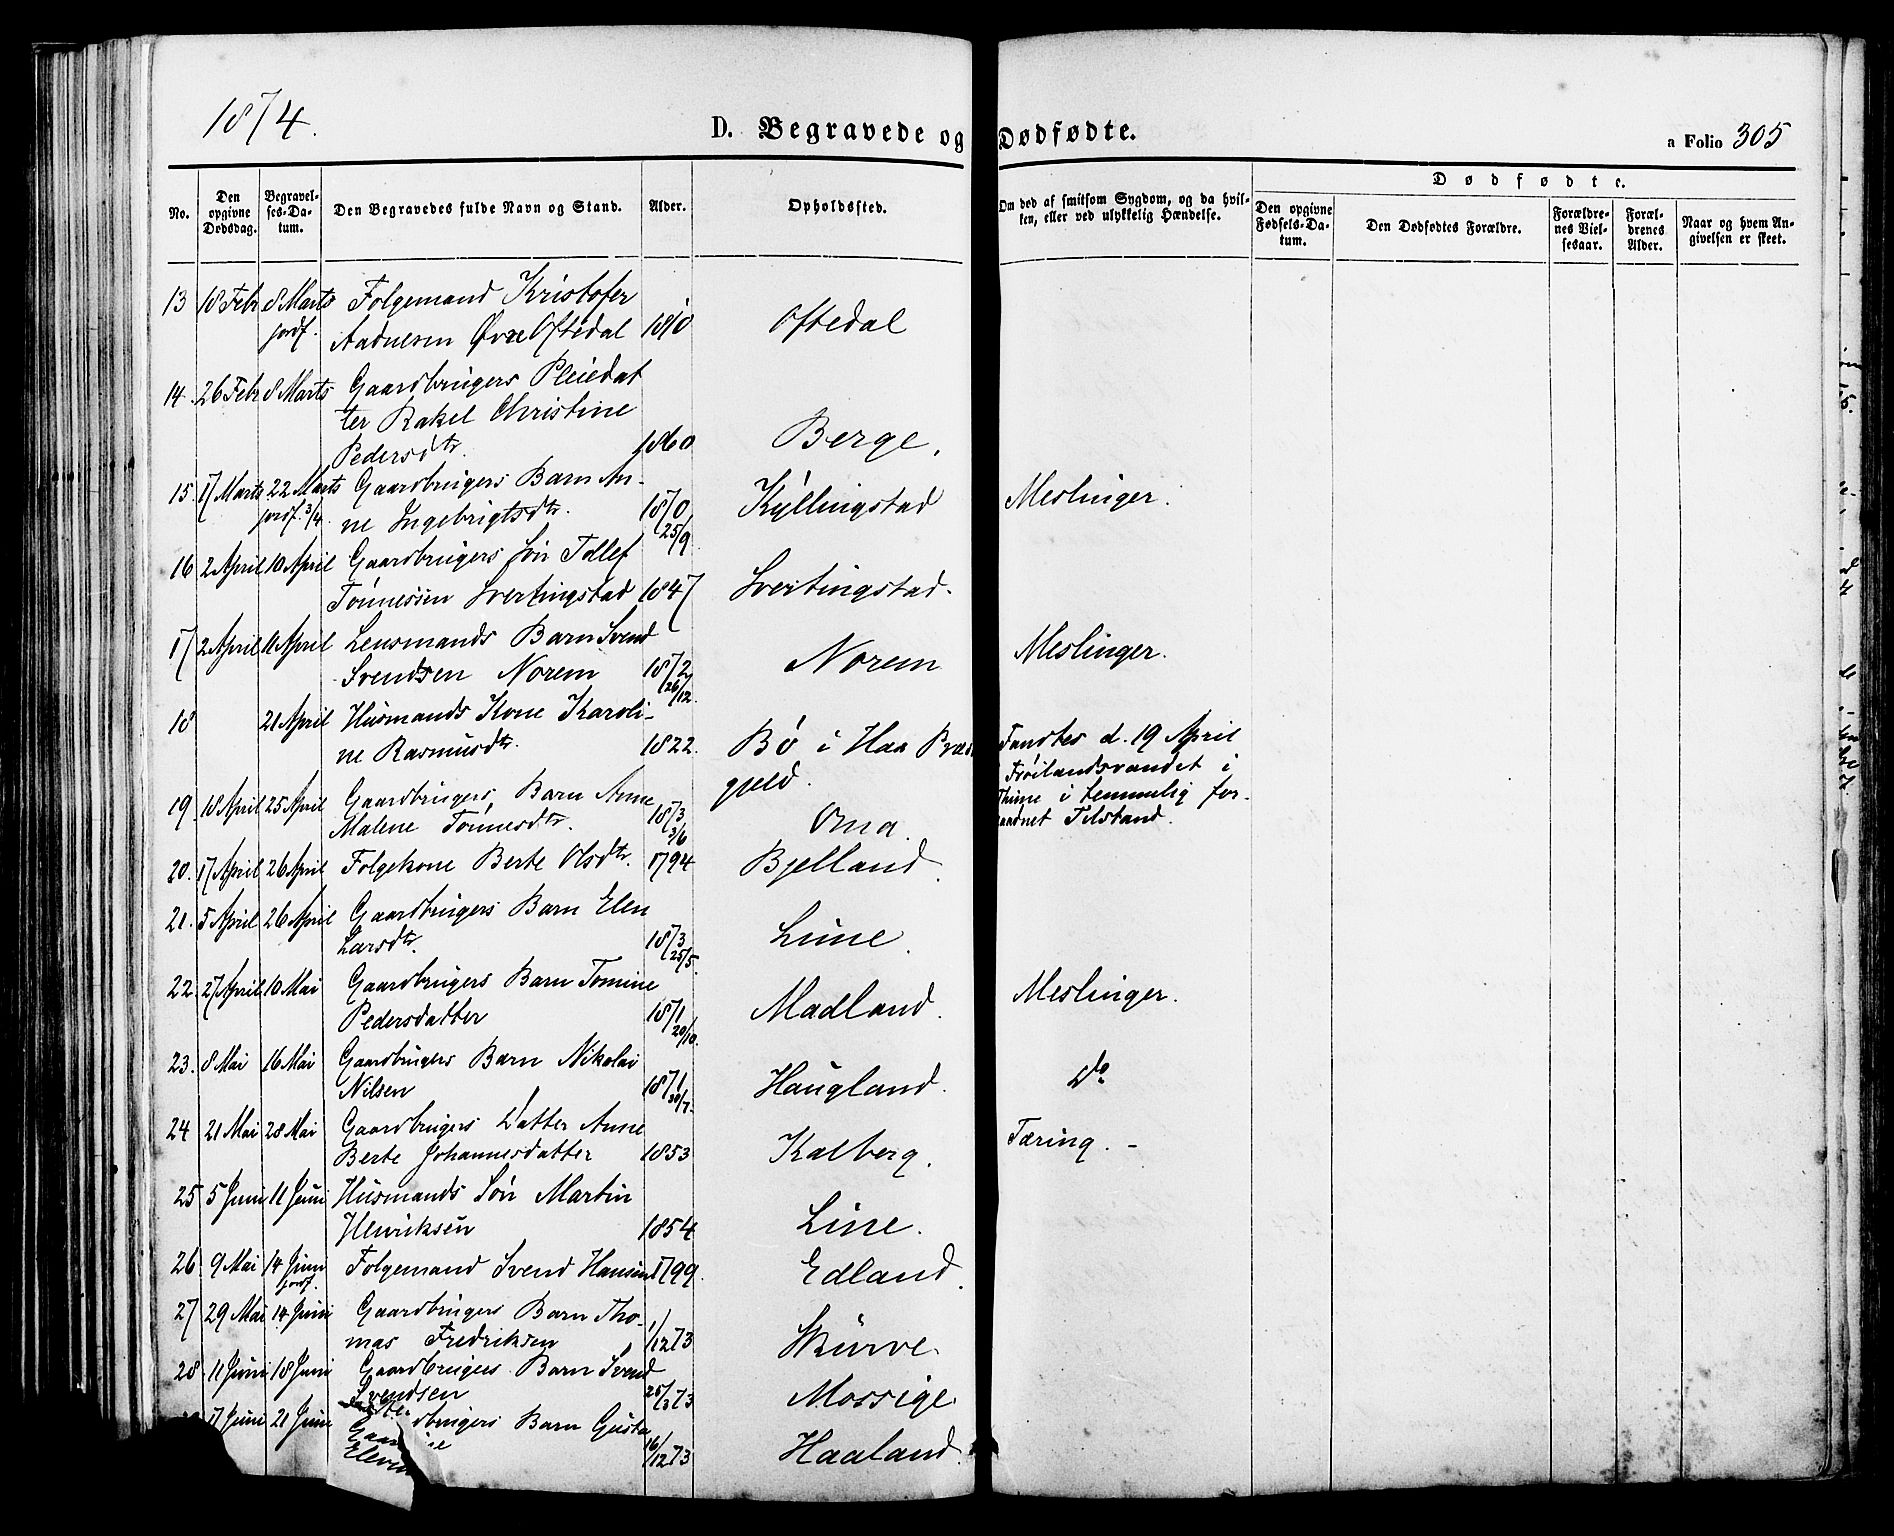 1874.
D. Begravede og Dødfødte.
a Folio 305
No.
Den opgivne Dødsdag.
Begravelses-Datum.
Den Begravedes fulde Navn og Stand.
Alder.
Opholdssted.
Om død af smitsom Sygdom, og da hvilken, eller ved ulykkelig Hændelse.
Dødfødte.
Den opgivne Fødsels-Datum.
Den Dødfødtes Forældre.
Forældrenes Vielsesaar.
Forældrenes Alder.
Naar og hvem Angivelsen er skeet.
13 18 Febr 8 Marts Folgemand Kristofer
jordf. Aadnesen Øvre Oftedal 1810 Oftedal
14. 26 Febr 8 Marts Gaardbrugers Pleiedat
ter Rakel Christine
Pedersdtr. 1860 Berge.
15. 17 Marts 22 Marts Gaardbrugers Barn An-
jordf. 3/4. ne Ingebrigtsdtr. 1870 25/9 Kyllingstad Meslinger.
16 2 April 10 April Gaardbrugers Søn Tollef
Tønnessen Svertingstad 1847 Svertingstad.
17 2 April 11 April Lensmands Barn Svend
Svendsen Norem 1872 26/12. Norem Meslinger.
18 21 April Husmands Kone Karoli-
ne Rasmusdtr. 1822. Bø i Haa Præs
gjeld.
Fandtes d. 19 April
Frøilandsvandet i
Thime i temmelig for-
raadnet Tilstand.
19 18 April 25 April Gaardbrugers Barn Anne
Malene Tønnesdtr. 1873 3/6 Oma.
20. 17 April 26 April Folgekone Berte Olsdtr. 1794 Bjelland.
21. 5 April 26 April Gaardbrugers Barn Elen
Larsdtr. 1873 25/5. Lime.
22 27 April 10 Mai Gaardbrugers Barn Tomine
Pedersdatter 1871 20/10. Madland. Meslinger.
23. 8 Mai 16 Mai Gaardbrugers Barn Nikolai
Nilsen 1871 30/7. Haugland. Do
24 21 Mai 28 Mai Gaardbrugers Datter Anne
Berte Johannesdatter 1853 Kalberg. Tæring. -
25 5 Juni 11 Juni Husmands Søn Martin
Henriksen 1854 Line.
26 9 Mai 14 Juni Folgemand Svend Hansen 1799. Edland.
jordf.
27 29 Mai 14 Juni Gaardbrugers Barn Tho-
mas Fredriksen 1/12 73 Skurve.
28 11 Juni 18 Juni Gaardbrugers Barn Svend
Svendsen 25/3 73 Mossige.
17 Juni 21 Juni Gaardbrugers Barn Gusta
16/12 73 Haaland.